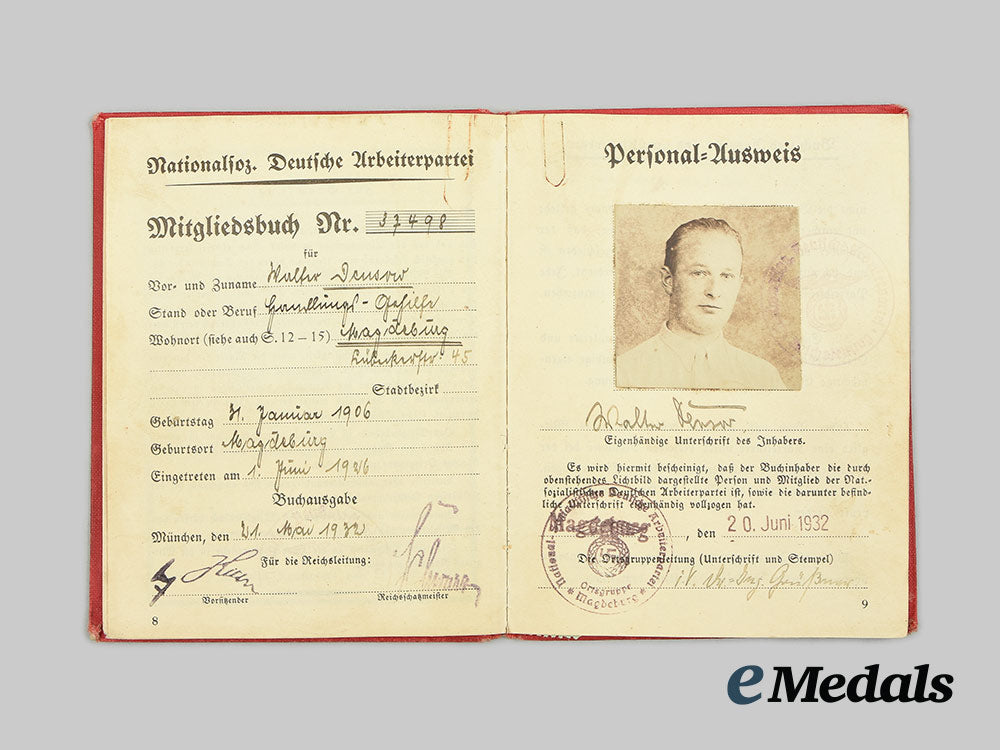 Nationalsoz. Deutsche Arbeiterpartei
Mitgliedsbuch Nr. 37498
für
Vor- und Zuname Walter Densow
Stand oder Beruf Handlungs-Gehilfe
Wohnort (siehe auch S. 12–15) Magdeburg
Lübeckerstr. 45
Stadtbezirk
Geburtstag 31. Januar 1906
Geburtsort Magdeburg
Eingetreten am 1. Juni 1926
Buchausgabe
München, den 21. Mai 1932
Für die Reichsleitung:
Vorsitzender
Reichschatzmeister
8
Personal=Ausweis
Walter
Eigenhändige Unterschrift des Inhabers.
Es wird hiermit bescheinigt, daß der Buchinhaber die durch
obenstehendes Lichtbild dargestellte Person und Mitglied der Nat.-
sozialistischen Deutschen Arbeiterpartei ist, sowie die darunter befind-
liche Unterschrift eigenhändig vollzogen hat.
Magdeburg, den 20. Juni 1932
Die Ortsgruppenleitung (Unterschrift und Stempel)
i.V. Dr.-Ing.
National-Sozialistische Deutsche Arbeiterpartei
Ortsgruppe
Magdeburg
9
eMedals